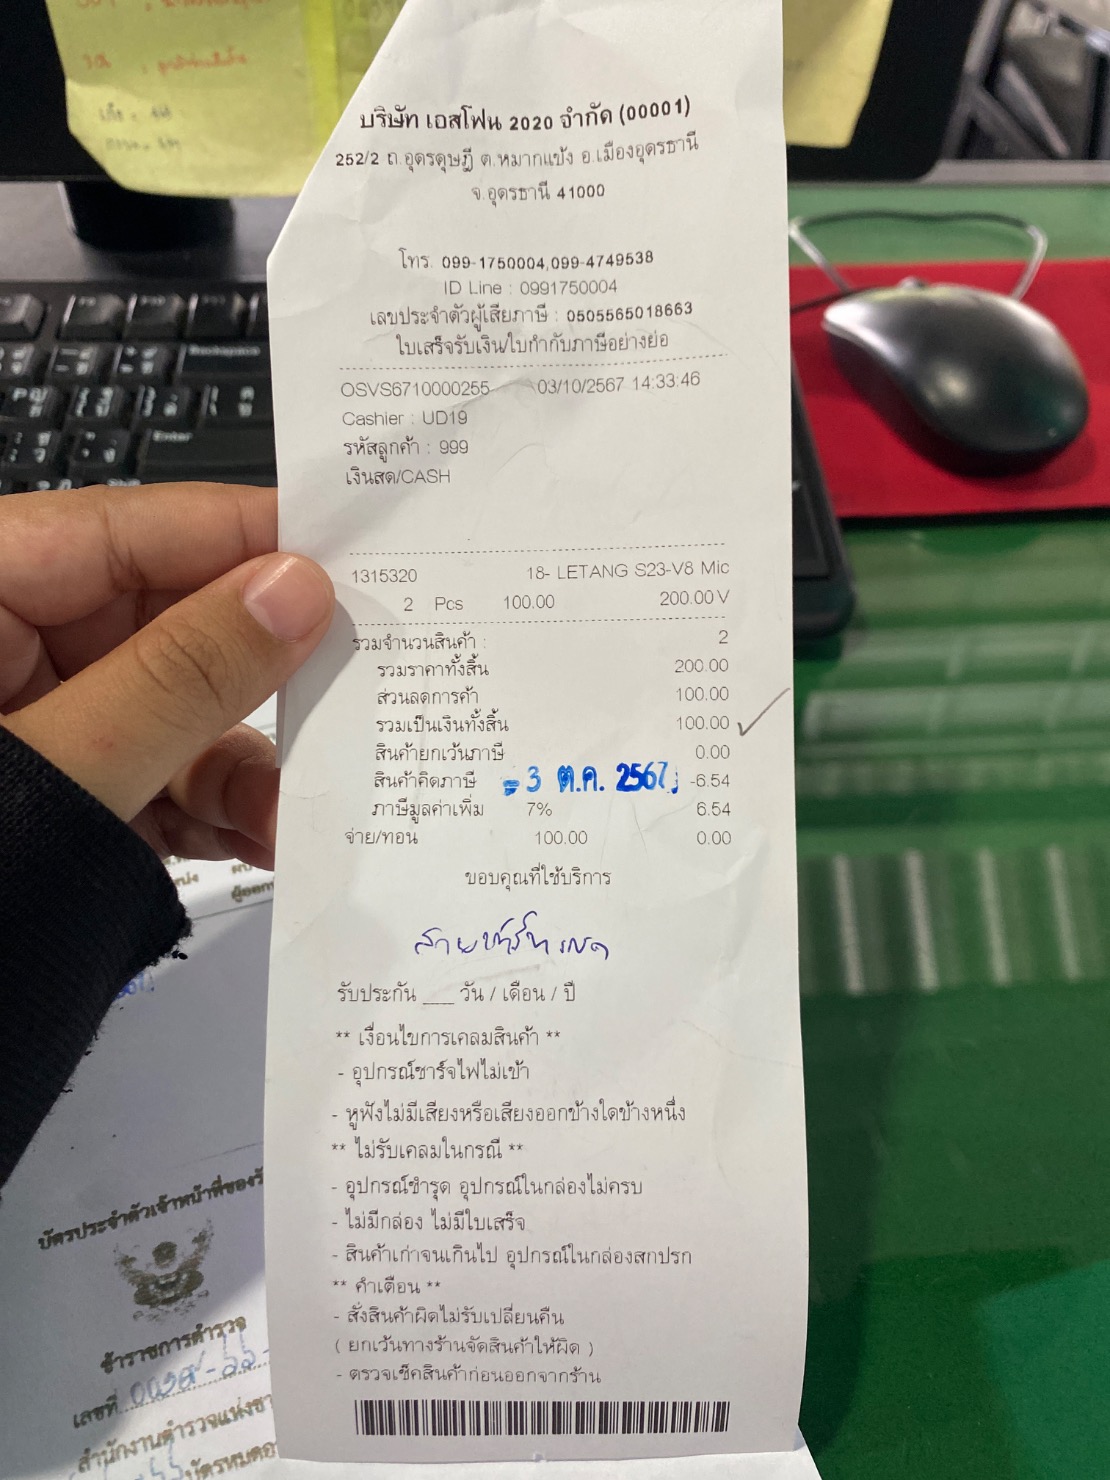 บริษัท เอสโฟน 2020 จำกัด (00001)
252/2 ถ.อุดรดุษฎี ต.หมากแข้ง อ.เมืองอุดรธานี
จ.อุดรธานี 41000
โทร. 099-1750004,099-4749538
ID Line : 0991750004
เลขประจำตัวผู้เสียภาษี : 0505565018663
ใบเสร็จรับเงิน/ใบกำกับภาษีอย่างย่อ
OSVS6710000255 03/10/2567 14:33:46
Cashier : UD19
รหัสลูกค้า : 999
เงินสด/CASH
1315320 18- LETANG S23-V8 Mic
2 Pcs 100.00 200.00V
รวมจำนวนสินค้า : 2
รวมราคาทั้งสิ้น 200.00
ส่วนลดการค้า 100.00
รวมเป็นเงินทั้งสิ้น 100.00
สินค้ายกเว้นภาษี 0.00
สินค้าคิดภาษี = 3 ต.ค. 2567 -6.54
ภาษีมูลค่าเพิ่ม 7% 6.54
จ่าย/ทอน 100.00 0.00
ขอบคุณที่ใช้บริการ
รับประกัน ___ วัน / เดือน / ปี
** เงื่อนไขการเคลมสินค้า **
- อุปกรณ์ชาร์จไฟไม่เข้า
- หูฟังไม่มีเสียงหรือเสียงออกข้างใดข้างหนึ่ง
** ไม่รับเคลมในกรณี **
- อุปกรณ์ชำรุด อุปกรณ์ในกล่องไม่ครบ
- ไม่มีกล่อง ไม่มีใบเสร็จ
- สินค้าเก่าจนเกินไป อุปกรณ์ในกล่องสกปรก
** คำเตือน **
- สั่งสินค้าผิดไม่รับเปลี่ยนคืน
( ยกเว้นทางร้านจัดสินค้าให้ผิด )
- ตรวจเช็คสินค้าก่อนออกจากร้าน
บัตรประจำตัวเจ้าหน้าที่ของรั
ข้าราชการตำรวจ
เลขที่
สำนักงานตำรวจแห่งชา
บัตรหมดอ
Backspace
Enter